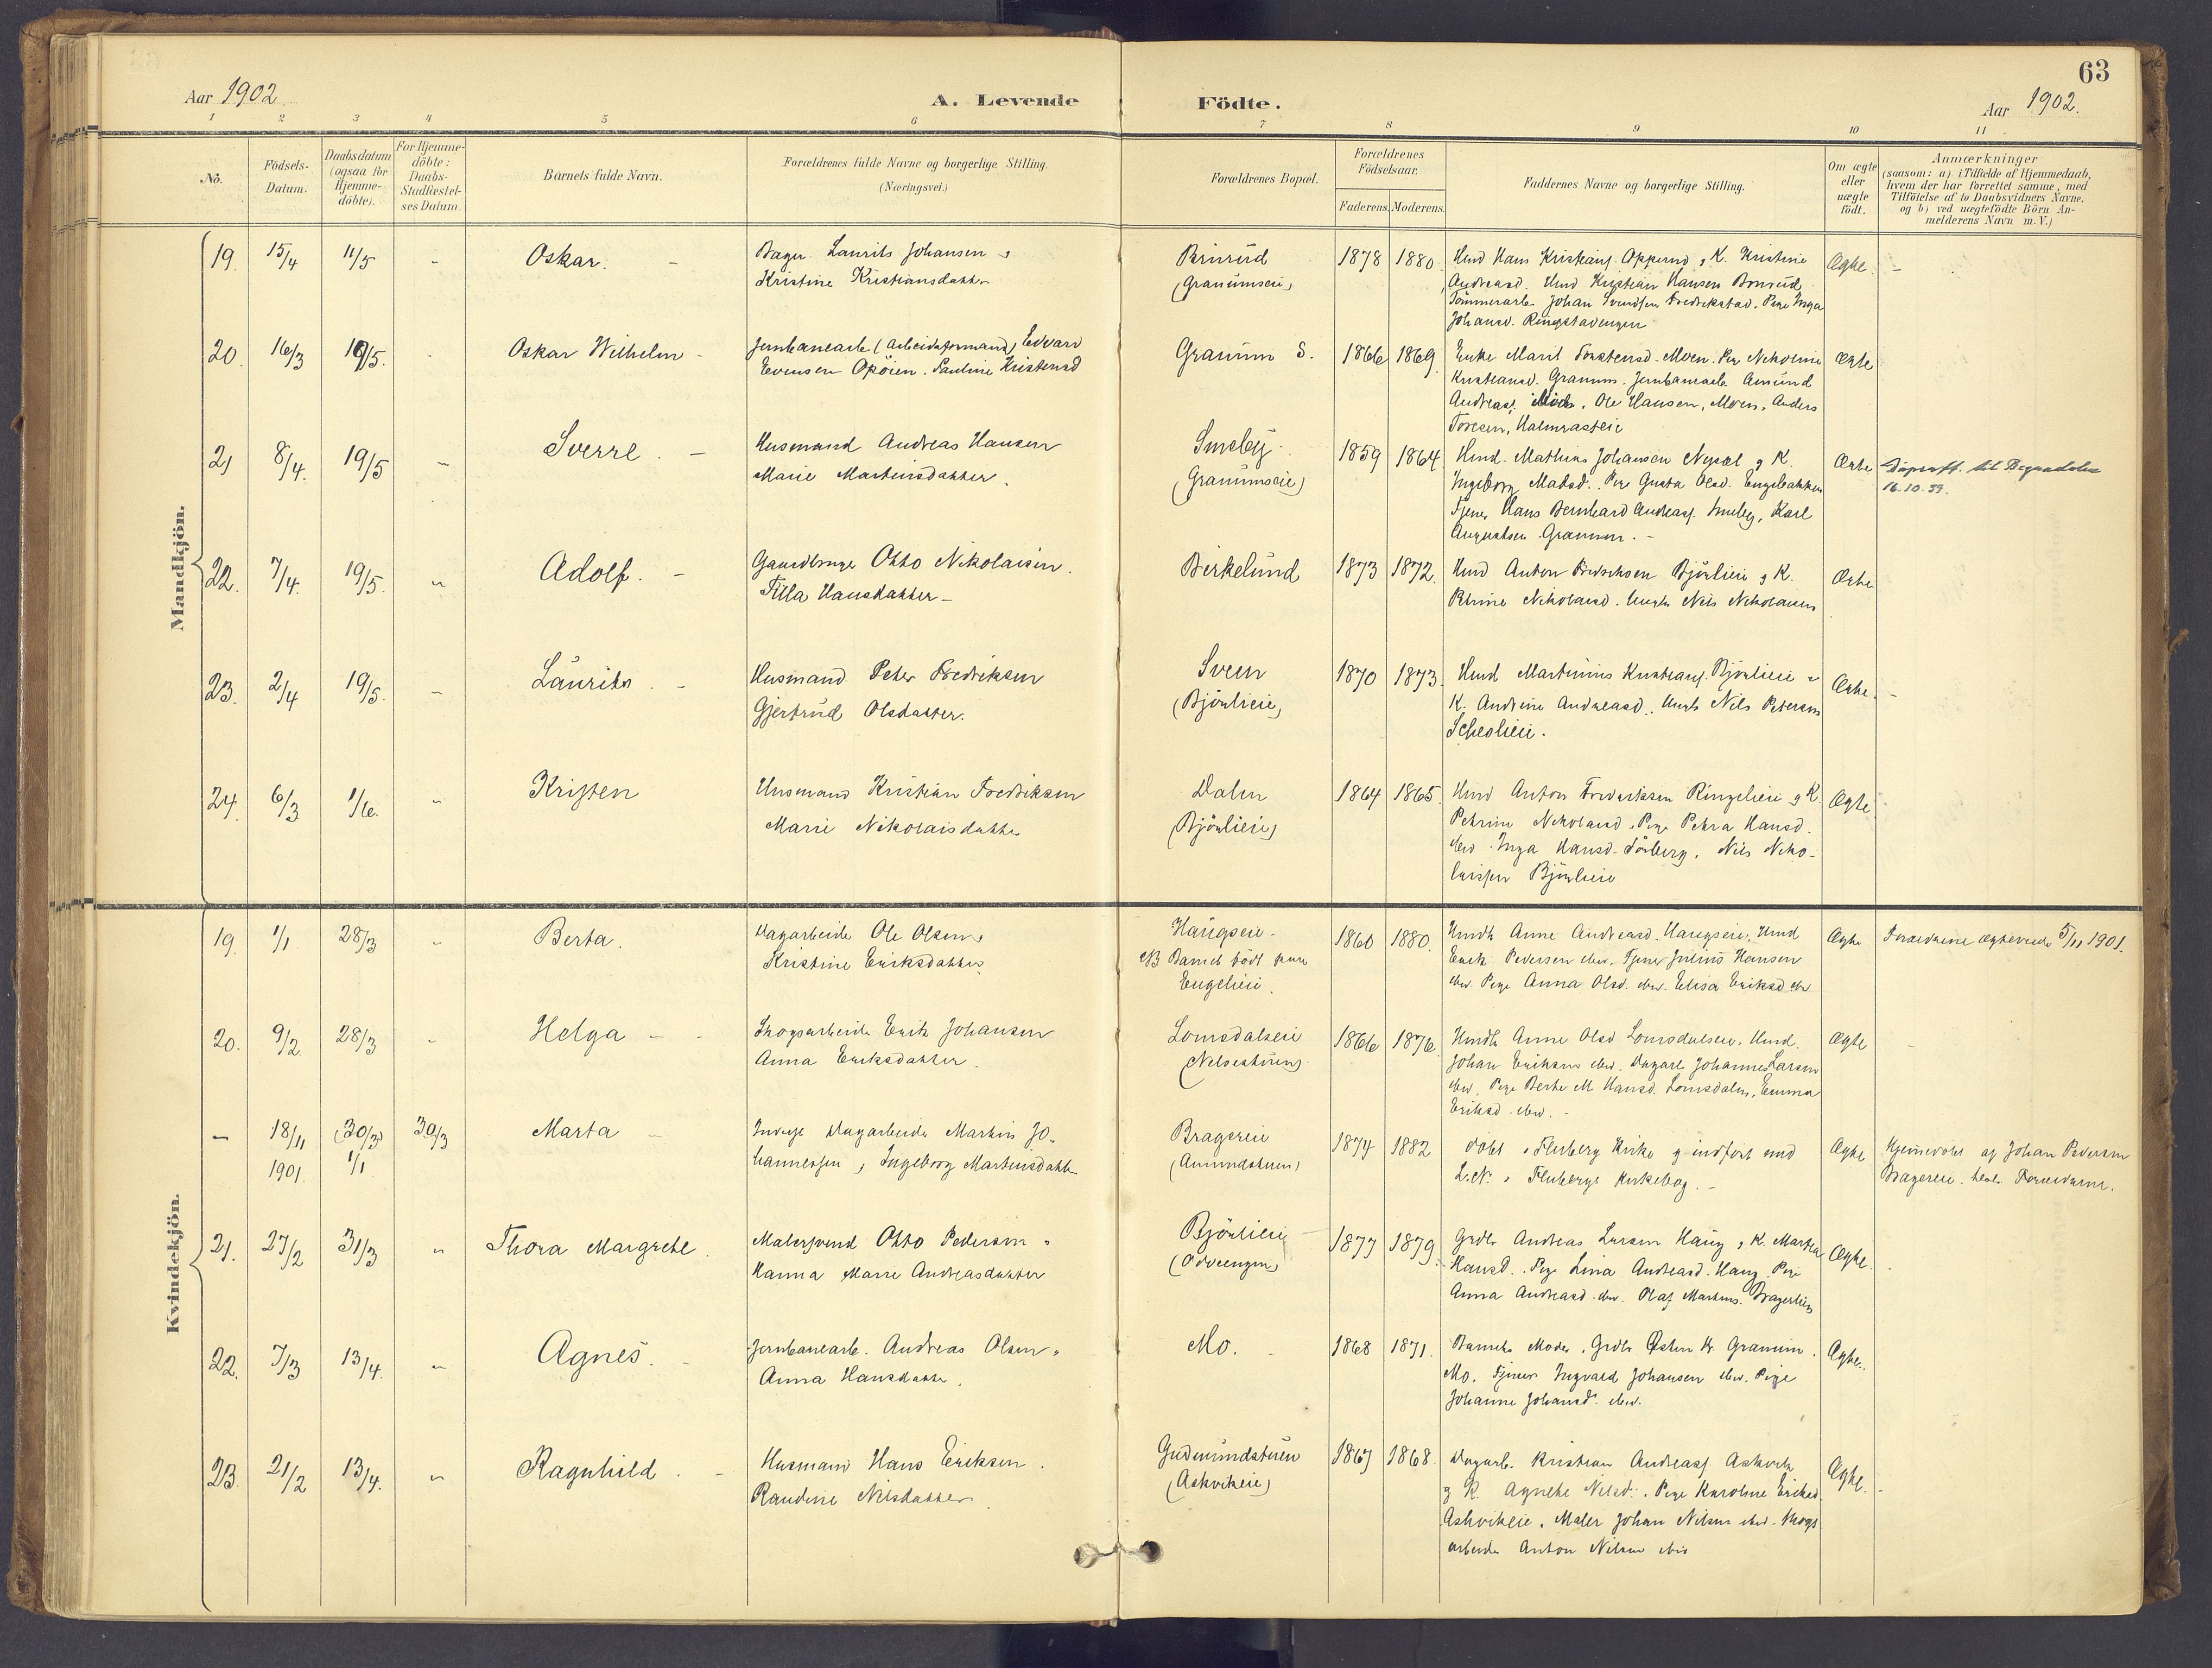 63
Aar 1902
A. Levende Födte.
Aar 1902.
1 2 3 4 5 6 7 8 9 10 11
No.
Födsels-
Datum.
Daabsdatum
(ogsaa for
Hjemme-
döbte).
For Hjemme-
döbte:
Daabs-
Stadfæstel-
ses Datum.
Barnets fulde Navn.
Forældrenes fulde Navne og borgerlige Stilling.
(Næringsvei.)
Forældrenes Bopæl.
Forældrenes
Födselsaar.
Faderens. Moderens.
Faddernes Navne og borgerlige Stilling.
Om ægte
eller
uægte
födt.
Anmærkninger
(saasom: a) i Tilfælde af Hjemmedaab,
hvem der har forrettet samme, med
Tilföielse af to Daabsvidners Navne.
og b) ved uægtefödte Börn An-
melderens Navn m. V.)
Mandkjön.
19. 15/4 11/5 " Oskar. -
Bager Laurits Johansen
Kristine Kristiansdatter
Brinrud
(Granumseie)
1878 1880.
Hmd Hans Kristians. Opperud, K. Kristine
Andreasd. Hmd Kristian Hansen Brinrud
Tömmerarb. Johan Svendsen Fredrikstad. Pige Inga
Johansd. Ringstadengen
Ægte.
20. 16/3 19/5. Oskar Wilhelm -
Jernbanearb (Arbeidsformand) Edvard
Evensen Opöien. Pauline Kristensd
Granum S. 1866 1869.
Enke Marit Torstensd. Moen. Pige Nikoline
Kristiansd. Granum. Jernbanearb Amund
Andreass. Ole Hansen, Moen, Anders
Toresen, Halmrasteie
Ægte
21 8/4. 19/5 " Sverre. -
Husmand Andreas Hansen
Marie Martinsdatter.
Smeby
(Granumseie)
1859 1864.
Hmd. Mathias Johansen Nysæt g K.
Ingeborg Matsd. Pige Gusta Olsd. Engebakken
Tjener Hans Bernhard Andreass. Smeby, Karl
Augustsen Granum. -
Ægte
16.10.39.
22. 7/4. 19/5. " Adolf. -
Gaardbruger Otto Nikolaisen.
Tilla Hansdatter -
Birkelund 1873 1872.
Hmd Anton Fredriksen Björlieie g K.
Petrine Nikolaisd. Ungk Nils Nikolaisen
Ægte
23. 2/4 19/5. " Laurits. -
Husmand Peter Fredriksen
Gjertrud Olsdatter.
Sveen
(Björlieie)
1870 1873.
Hmd Martinius Kristians. Björlieie
K. Andrine Andreasd. Ungk Nils Petersen
Scheslieie.
Ægte.
24. 6/3 1/6. " Kristen
Husmand Kristian Fredriksen
Marie Nikolaisdatter
Dalen
(Björlieie)
1864 1865.
Hmd Anton Fredriksen Ringelieie g K.
Petrine Nikolaisd. Pige Petra Hansd.
ibid. Inga Hansd. Nils Niko-
laissen Björlieie
Ægte
Kvindekjön.
19. 1/1 28/3 " Berta.
Dagarbeider Ole Olsen
Kristine Eriksdatter
Haugseie.
NB Barnet födt paa
Engelieie.
1860 1880.
Hmdk Anne Andreasd. Haugseie, Hmd
Erik Pedersen ibid. Tjener Julius Hansen
ibid. Pige Anna Olsd. ibid. Elisa Eriksd ib
Ægte
Forældrene ægteviede 5/11 1901.
20. 9/2 28/3 " Helga -
Skogsarbeider Erik Johansen
Anna Eriksdatter.
Lomsdalseie
(Nelsestuen)
1866 1876.
Hmdk Anne Olsd Lomsdalseie. Hmd.
Johan Eriksen ibid. Dagarb Johannes Larsen
ibid. Pige Berte M. Hansd. Lomsdalen, Emma
Eriksd. ibid. -
Ægte
- 18/11 (30/3) 30/3 Marta -
1901. 1/1
Inderst Dagarbeider Martin Jo-
hannessen, Ingeborg Martinsdatter
Bragereie
(Amundstuen)
1874 1882
döbt i Fluberg Kirke g indfört med
L.N. i Flubergs Kirkebog. -
Ægte
Hjemmedöbt af Johan Pedersen
Bragereie. Forældrene.
21. 27/2 31/3 " Thora Margrete.
Malersvend Otto Pedersen
Hanna Marie Andreasdatter
Björlieie
(Odveengen)
1877 1879.
Grdbr Andreas Larsen Haug, K. Martea
Hansd. Pige Lina Andreasd. Haug. Pige
Anna Andreasd. ibid. Olaf Martins. Bragerlien
Ægte.
22. 7/3 13/4. " Agnes.
Jernbanearb. Andreas Olsen
Anna Hansdatter.
Mo. 1868 1871.
Barnets Moder, Grdbr Østen Kr. Granum.
Mo. Tjener Ingvald Johansen ibid. Pige
Johanne Johansd. ibid.
Ægte.
23. 21/2 13/4. " Ragnhild. -
Husmand Hans Eriksen.
Randine Nilsdatter.
Gudmundstuen
(Askvikeie)
1867 1868.
Dagarb. Kristian Andreass. Askvik
g K. Agnete Nilsd. Pige Karoline Eriksd.
Askvikeie. Maler Johan Nilsen ibid. Skogs
arbeider Anton Nilsen ibid
Ægte.